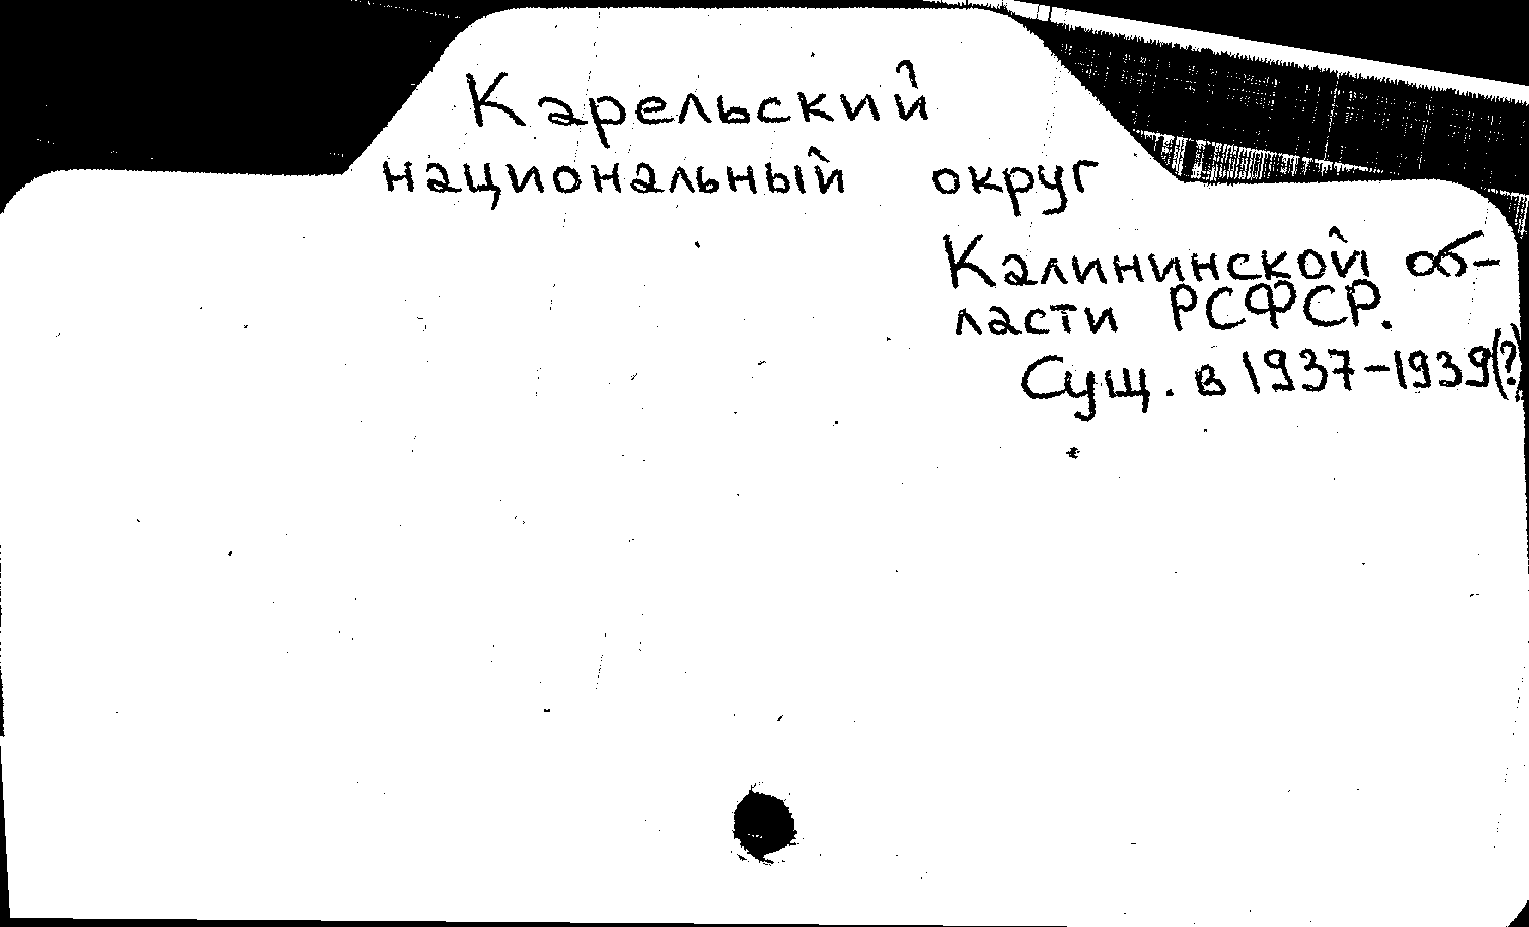 Карельский
национальный округ
Калининской об-
ласти РСФСР.
Сущ. в 1937-1939(?)